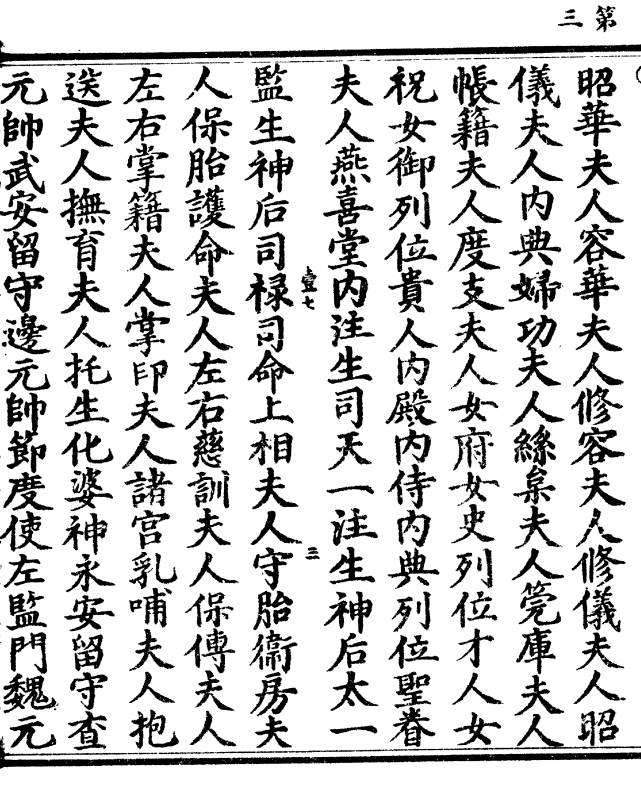 第三
昭華夫人容華夫人修容夫人修儀夫人昭
儀夫人内典婦功夫人絲枲夫人筦庫夫人
帳籍夫人度支夫人女府女史列位才人女
祝女御列位貴人内殿内侍内典列位聖眷
夫人燕喜堂内注生司天一注生神后太一
壹七
三
監生神后司禄司命上相夫人守胎衛房夫
人保胎護命夫人左右慈訓夫人保傅夫人
左右掌籍夫人掌印夫人諸宮乳哺夫人抱
送夫人撫育夫人托生化婆神永安留守查
元帥武安留守邊元帥節度使左監門魏元